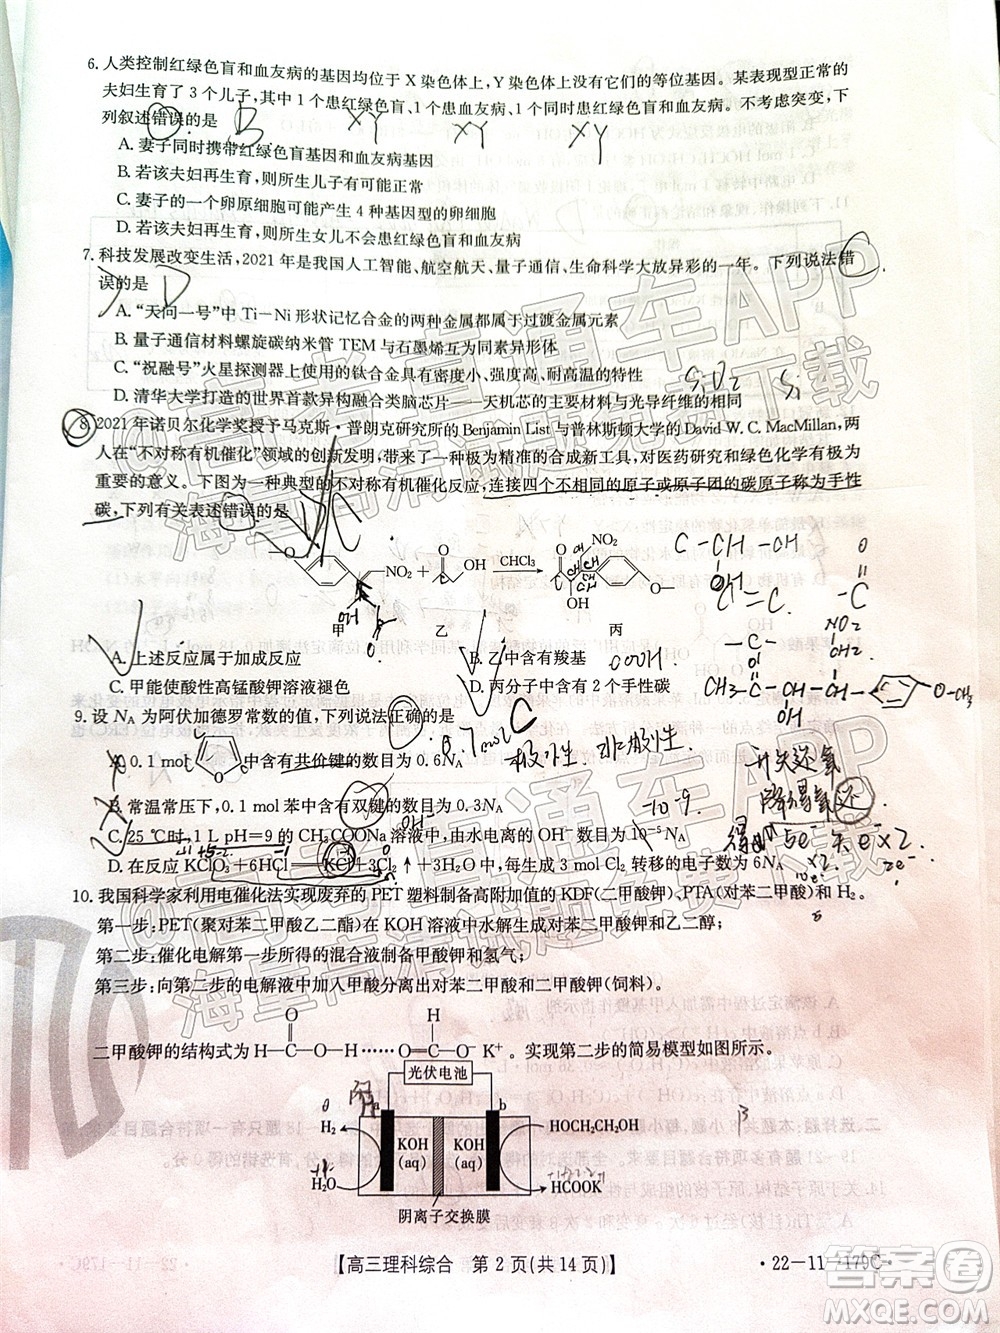 6. 人类控制红绿色盲和血友病的基因均位于 X 染色体上，Y 染色体上没有它们的等位基因。某表现型正常的
夫妇生育了 3 个儿子，其中 1 个患红绿色盲、1 个患血友病、1 个同时患红绿色盲和血友病。不考虑突变，下
列叙述错误的是 B XY XY XY
A. 妻子同时携带红绿色盲基因和血友病基因
B. 若该夫妇再生育，则所生儿子有可能正常
C. 妻子的一个卵原细胞可能产生 4 种基因型的卵细胞
D. 若该夫妇再生育，则所生女儿不会患红绿色盲和血友病
7. 科技发展改变生活，2021 年是我国人工智能、航空航天、量子通信、生命科学大放异彩的一年。下列说法错
误的是 D
A. “天问一号”中 Ti－Ni 形状记忆合金的两种金属都属于过渡金属元素
B. 量子通信材料螺旋碳纳米管 TEM 与石墨烯互为同分异构体
C. “祝融号”火星探测器上使用的钛合金具有密度小、强度高、耐高温的特性
SiO2 Si
D. 清华大学打造的世界首款异构融合类脑芯片——天机芯的主要材料与光导纤维的相同
8. 2021 年诺贝尔化学奖授予马克斯·普朗克研究所的 Benjamin List 与普林斯顿大学的 David W. C. MacMillan，两
人在“不对称有机催化”领域的创新发明，带来了一种极为精准的合成新工具，对医药研究和绿色化学有极为
重要的意义。下图是一种典型的不对称有机催化反应，连接四个不相同的原子或原子团的碳原子称为手性
碳，下列有关表述错误的是
NO₂ + O OH CHCl₃ O NO₂ OH O
甲 乙 丙
A. 上述反应属于加成反应 B. 乙中含有羧基 COOH
C. 甲能使酸性高锰酸钾溶液褪色 D. 丙分子中含有 2 个手性碳
9. 设 Nₐ 为阿伏加德罗常数的值，下列说法正确的是 C
A. 0.1 mol O 中含有共价键的数目为 0.6Nₐ
B. 常温常压下，0.1 mol 苯中含有双键的数目为 0.3Nₐ
C. 25 ℃时，1 L pH=9 的 CH₃COONa 溶液中，由水电离的 OH⁻ 数目为 10⁻⁵Nₐ
D. 在反应 KClO₃+6HCl══KCl+3Cl₂↑+3H₂O 中，每生成 3 mol Cl₂ 转移的电子数为 6Nₐ
10. 我国科学家利用电催化法实现废弃的 PET 塑料制备高附加值的 KDF(二甲酸钾)、PTA(对苯二甲酸)和 H₂。
第一步：PET(聚对苯二甲酸乙二酯)在 KOH 溶液中水解生成对苯二甲酸钾和乙二醇；
第二步：催化电解第一步所得的混合液制备甲酸钾和氢气；
第三步：向第二步的电解液中加入甲酸分离出对苯二甲酸和二甲酸钾(饲料)。
O H
二甲酸钾的结构式为 H—C—O—H……O—C—O⁻ K⁺ 。实现第二步的简易模型如图所示。
光伏电池
a b
H₂ KOH (aq) KOH (aq) HOCH₂CH₂OH
H₂O HCOOK
阴离子交换膜
【高三理科综合 第 2 页(共 14 页)】
·22-11-179C·
@高考直通车APP
海量高清试题免费下载
答案圈
MXQE.COM